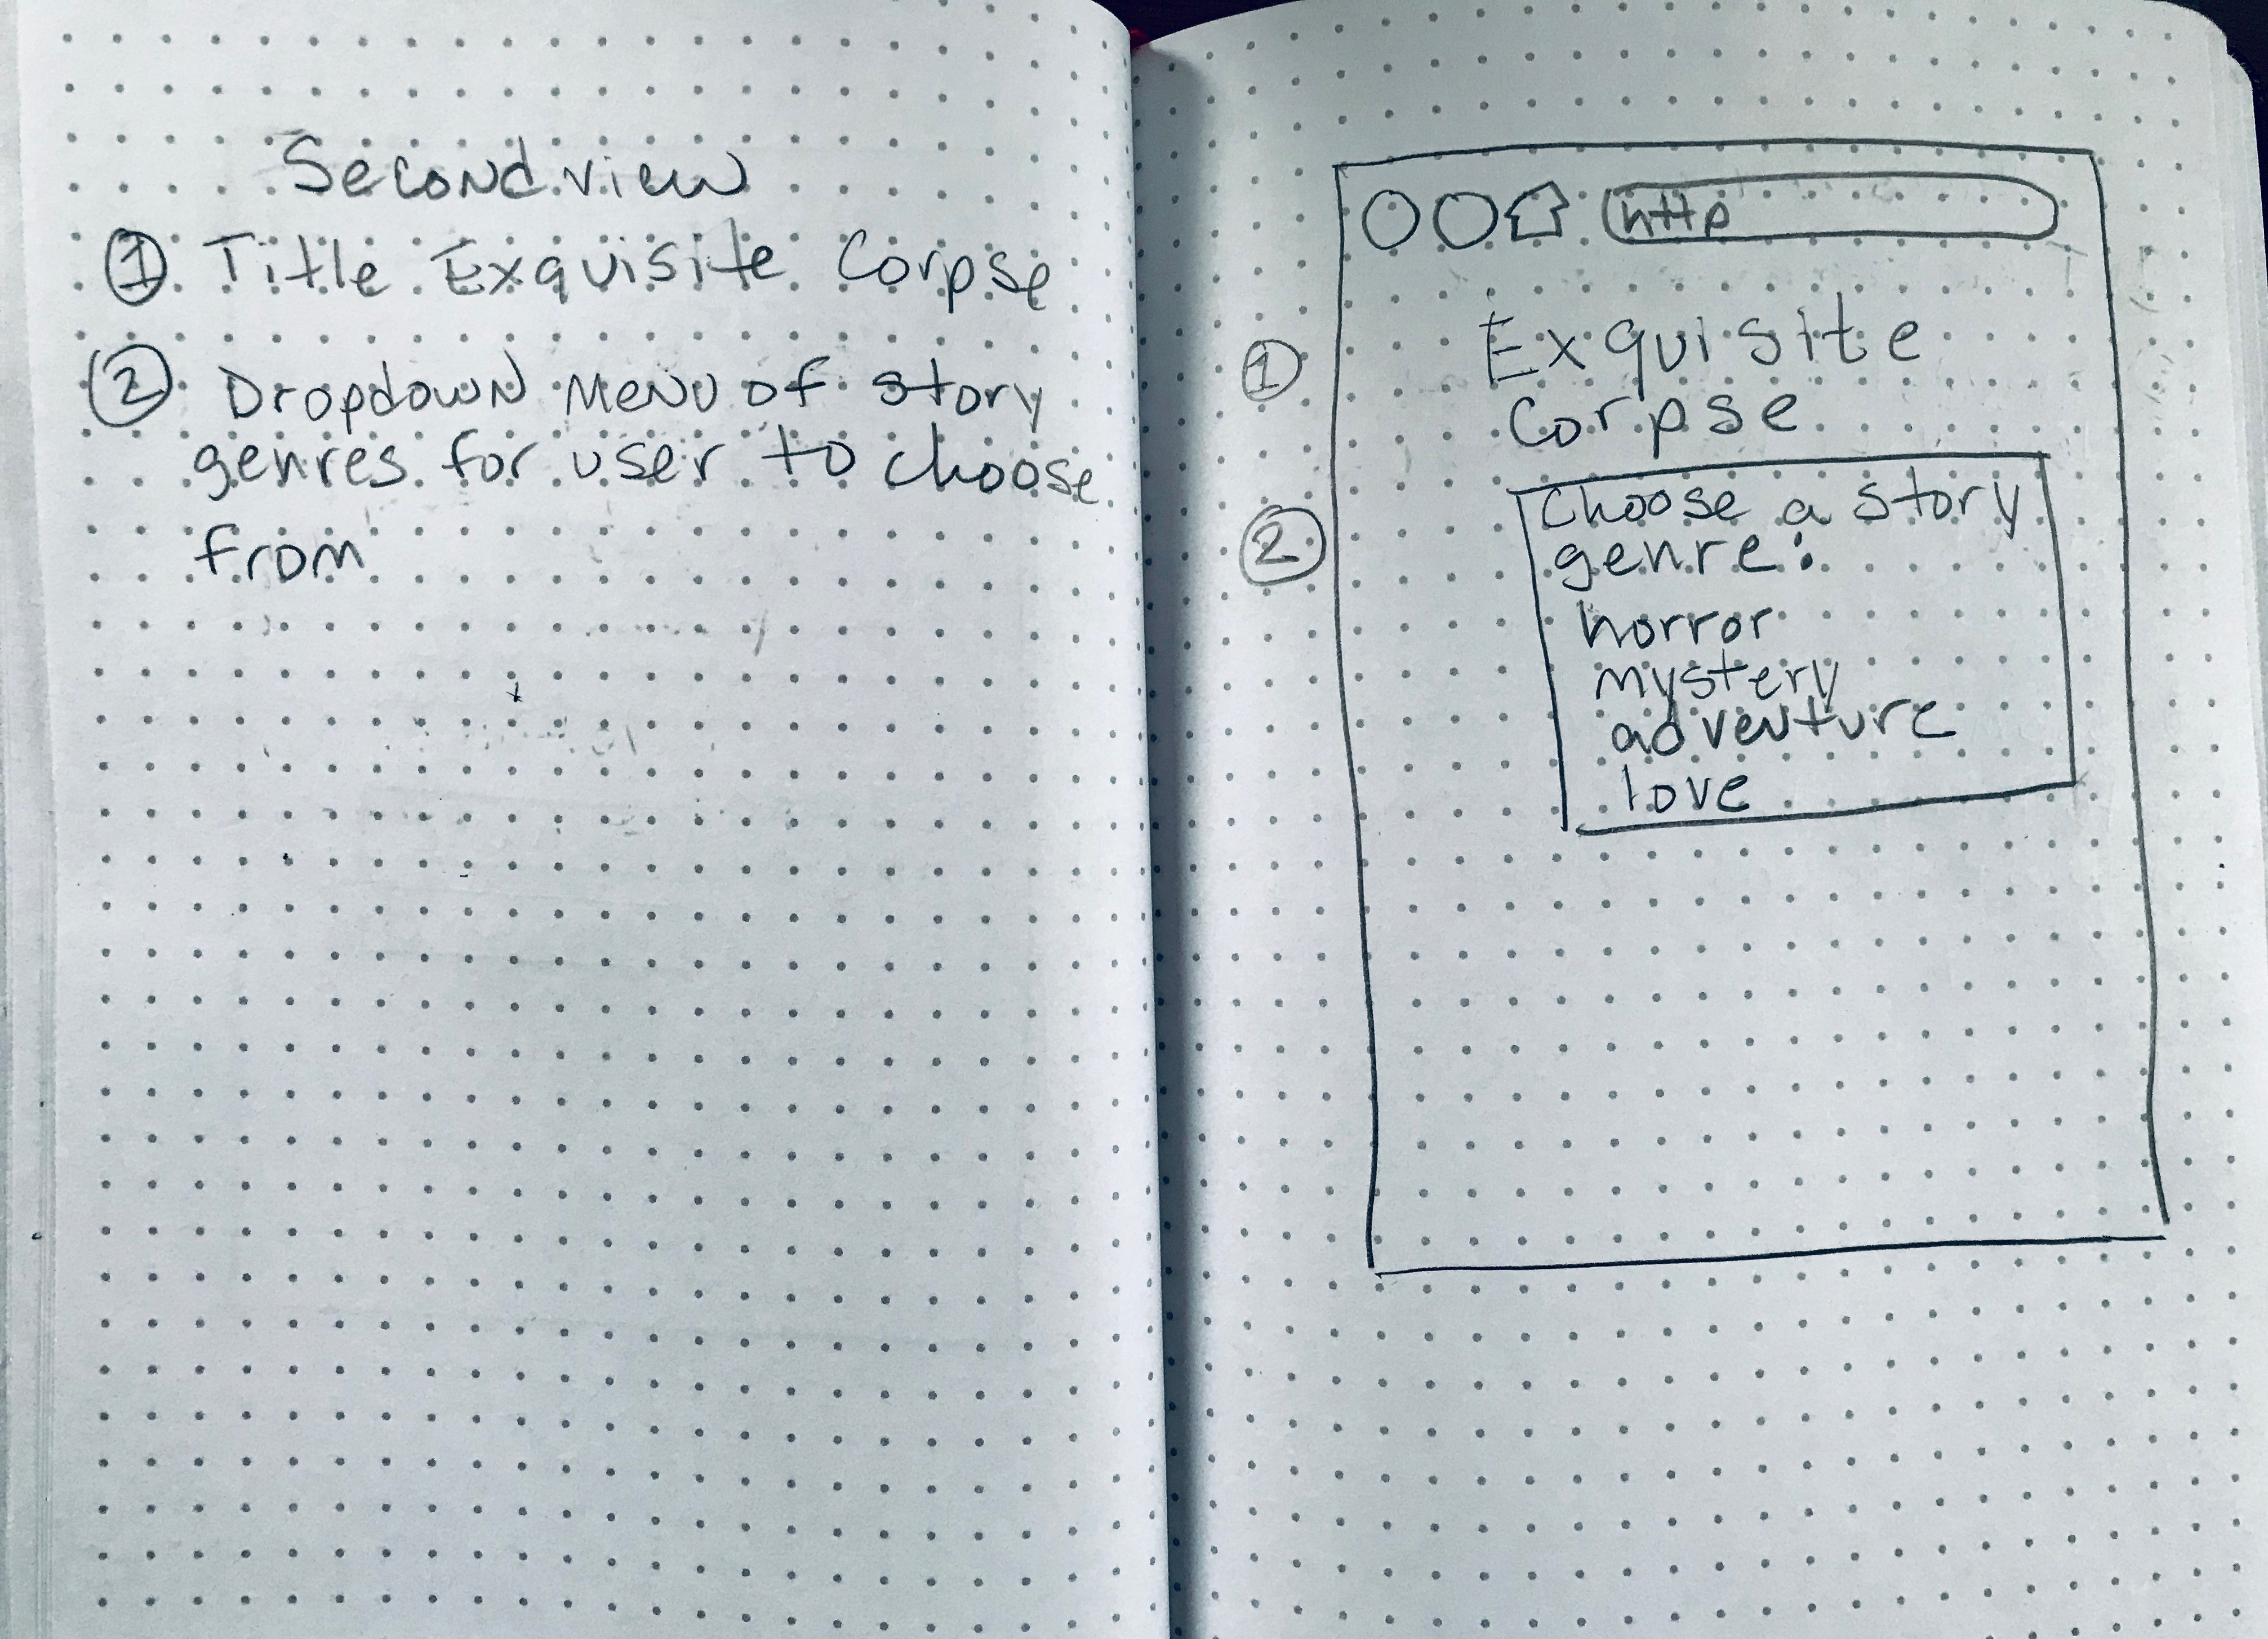 Second view
1 Title Exquisite Corpse
2 Dropdown Menu of story
genres for user to choose
from
http
1 Exquisite
Corpse
2 Choose a story
genre:
horror
mystery
adventure
love